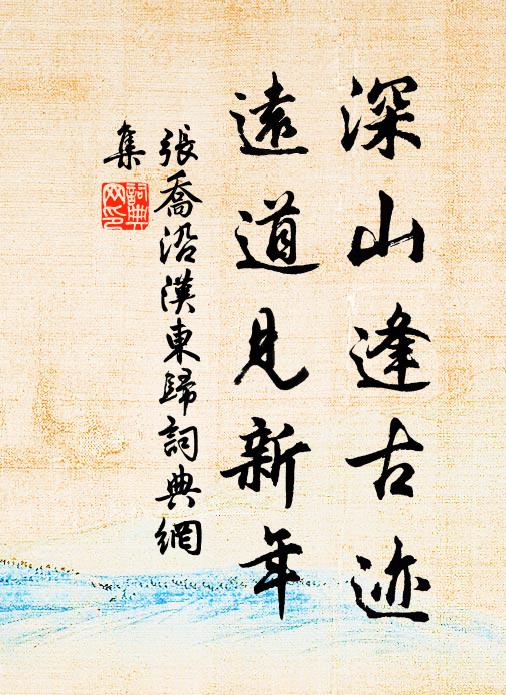 深山逢古迹
遠道見新年
張喬沿漢東歸詞典網
集
詞典網印